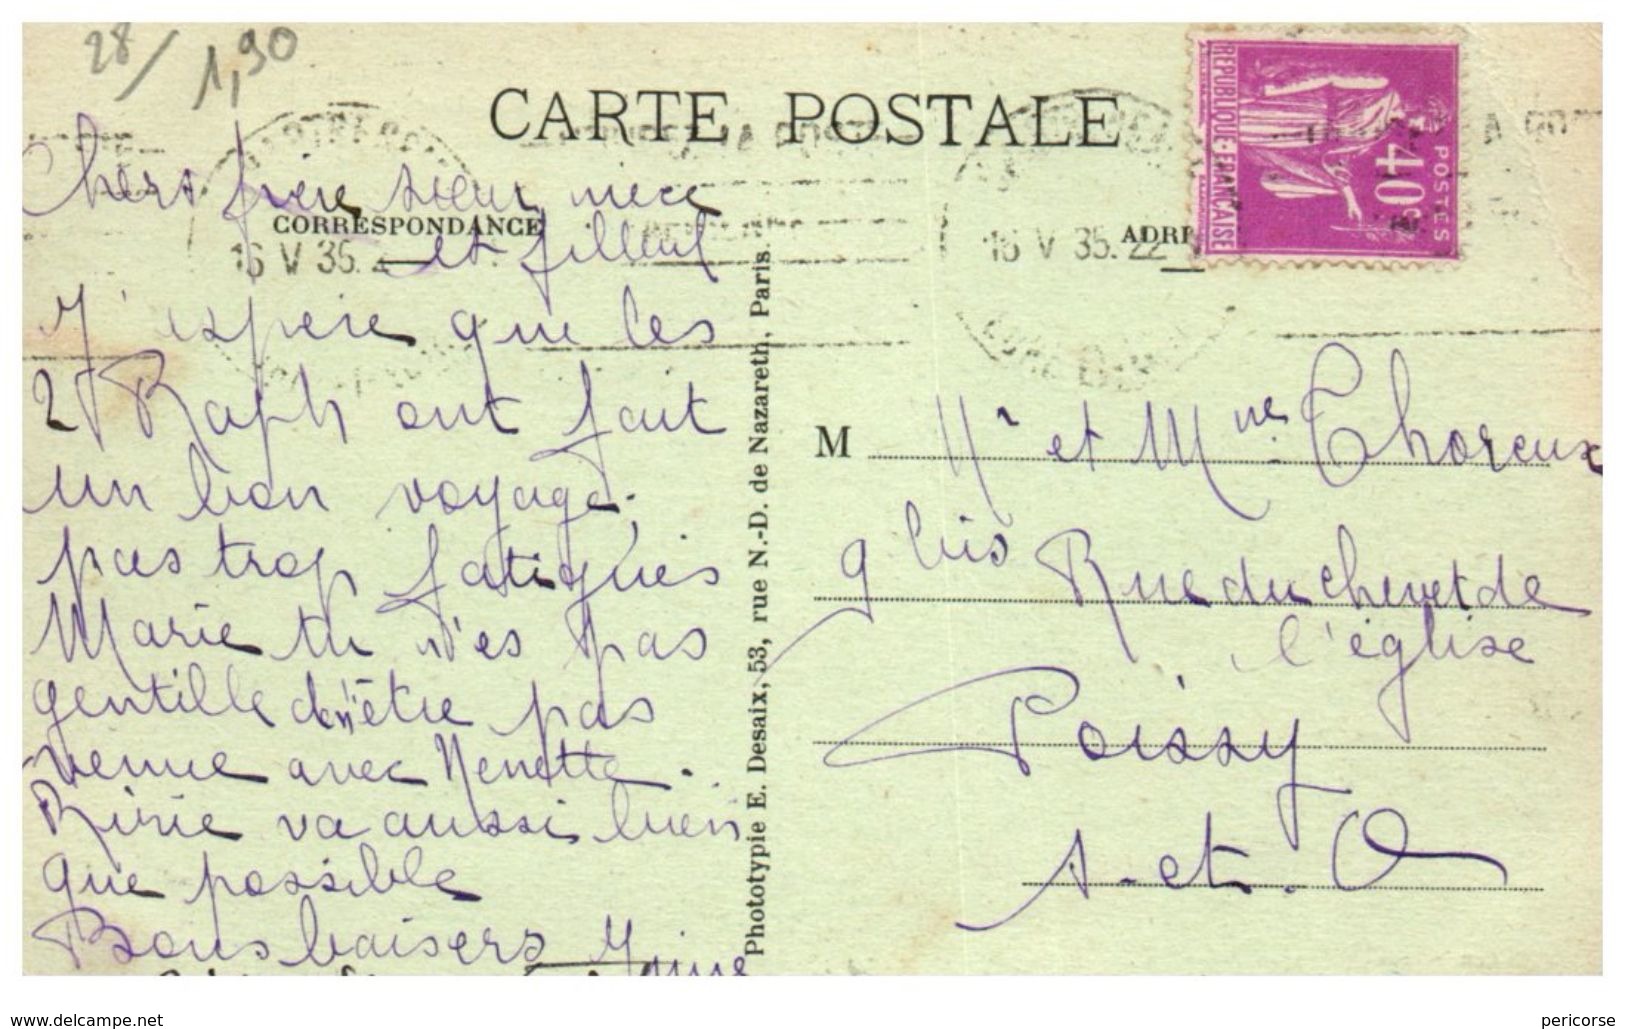 28/ 1,90
CARTE POSTALE
CORRESPONDANCE
ADR
16 V 35.
16 V 35. 22
RÉPUBLIQUE·FRANÇAISE
POSTES
40c
Chers frère sœur niece
et filleul
J'espere que les
2 Raph ont fait
un bon voyage,
pas trop fatigués
Marie tu n'es pas
gentille de n'être pas
venue avec Nenette.
Ririe va aussi bien
que possible
Bons baisers
Phototypie E. Desaix, 53, rue N.-D. de Nazareth, Paris.
M Mr et Mme Thoreux
9 bis Rue du Chevet de
l'église
Poissy
S.-et.O
www.delcampe.net
pericorse